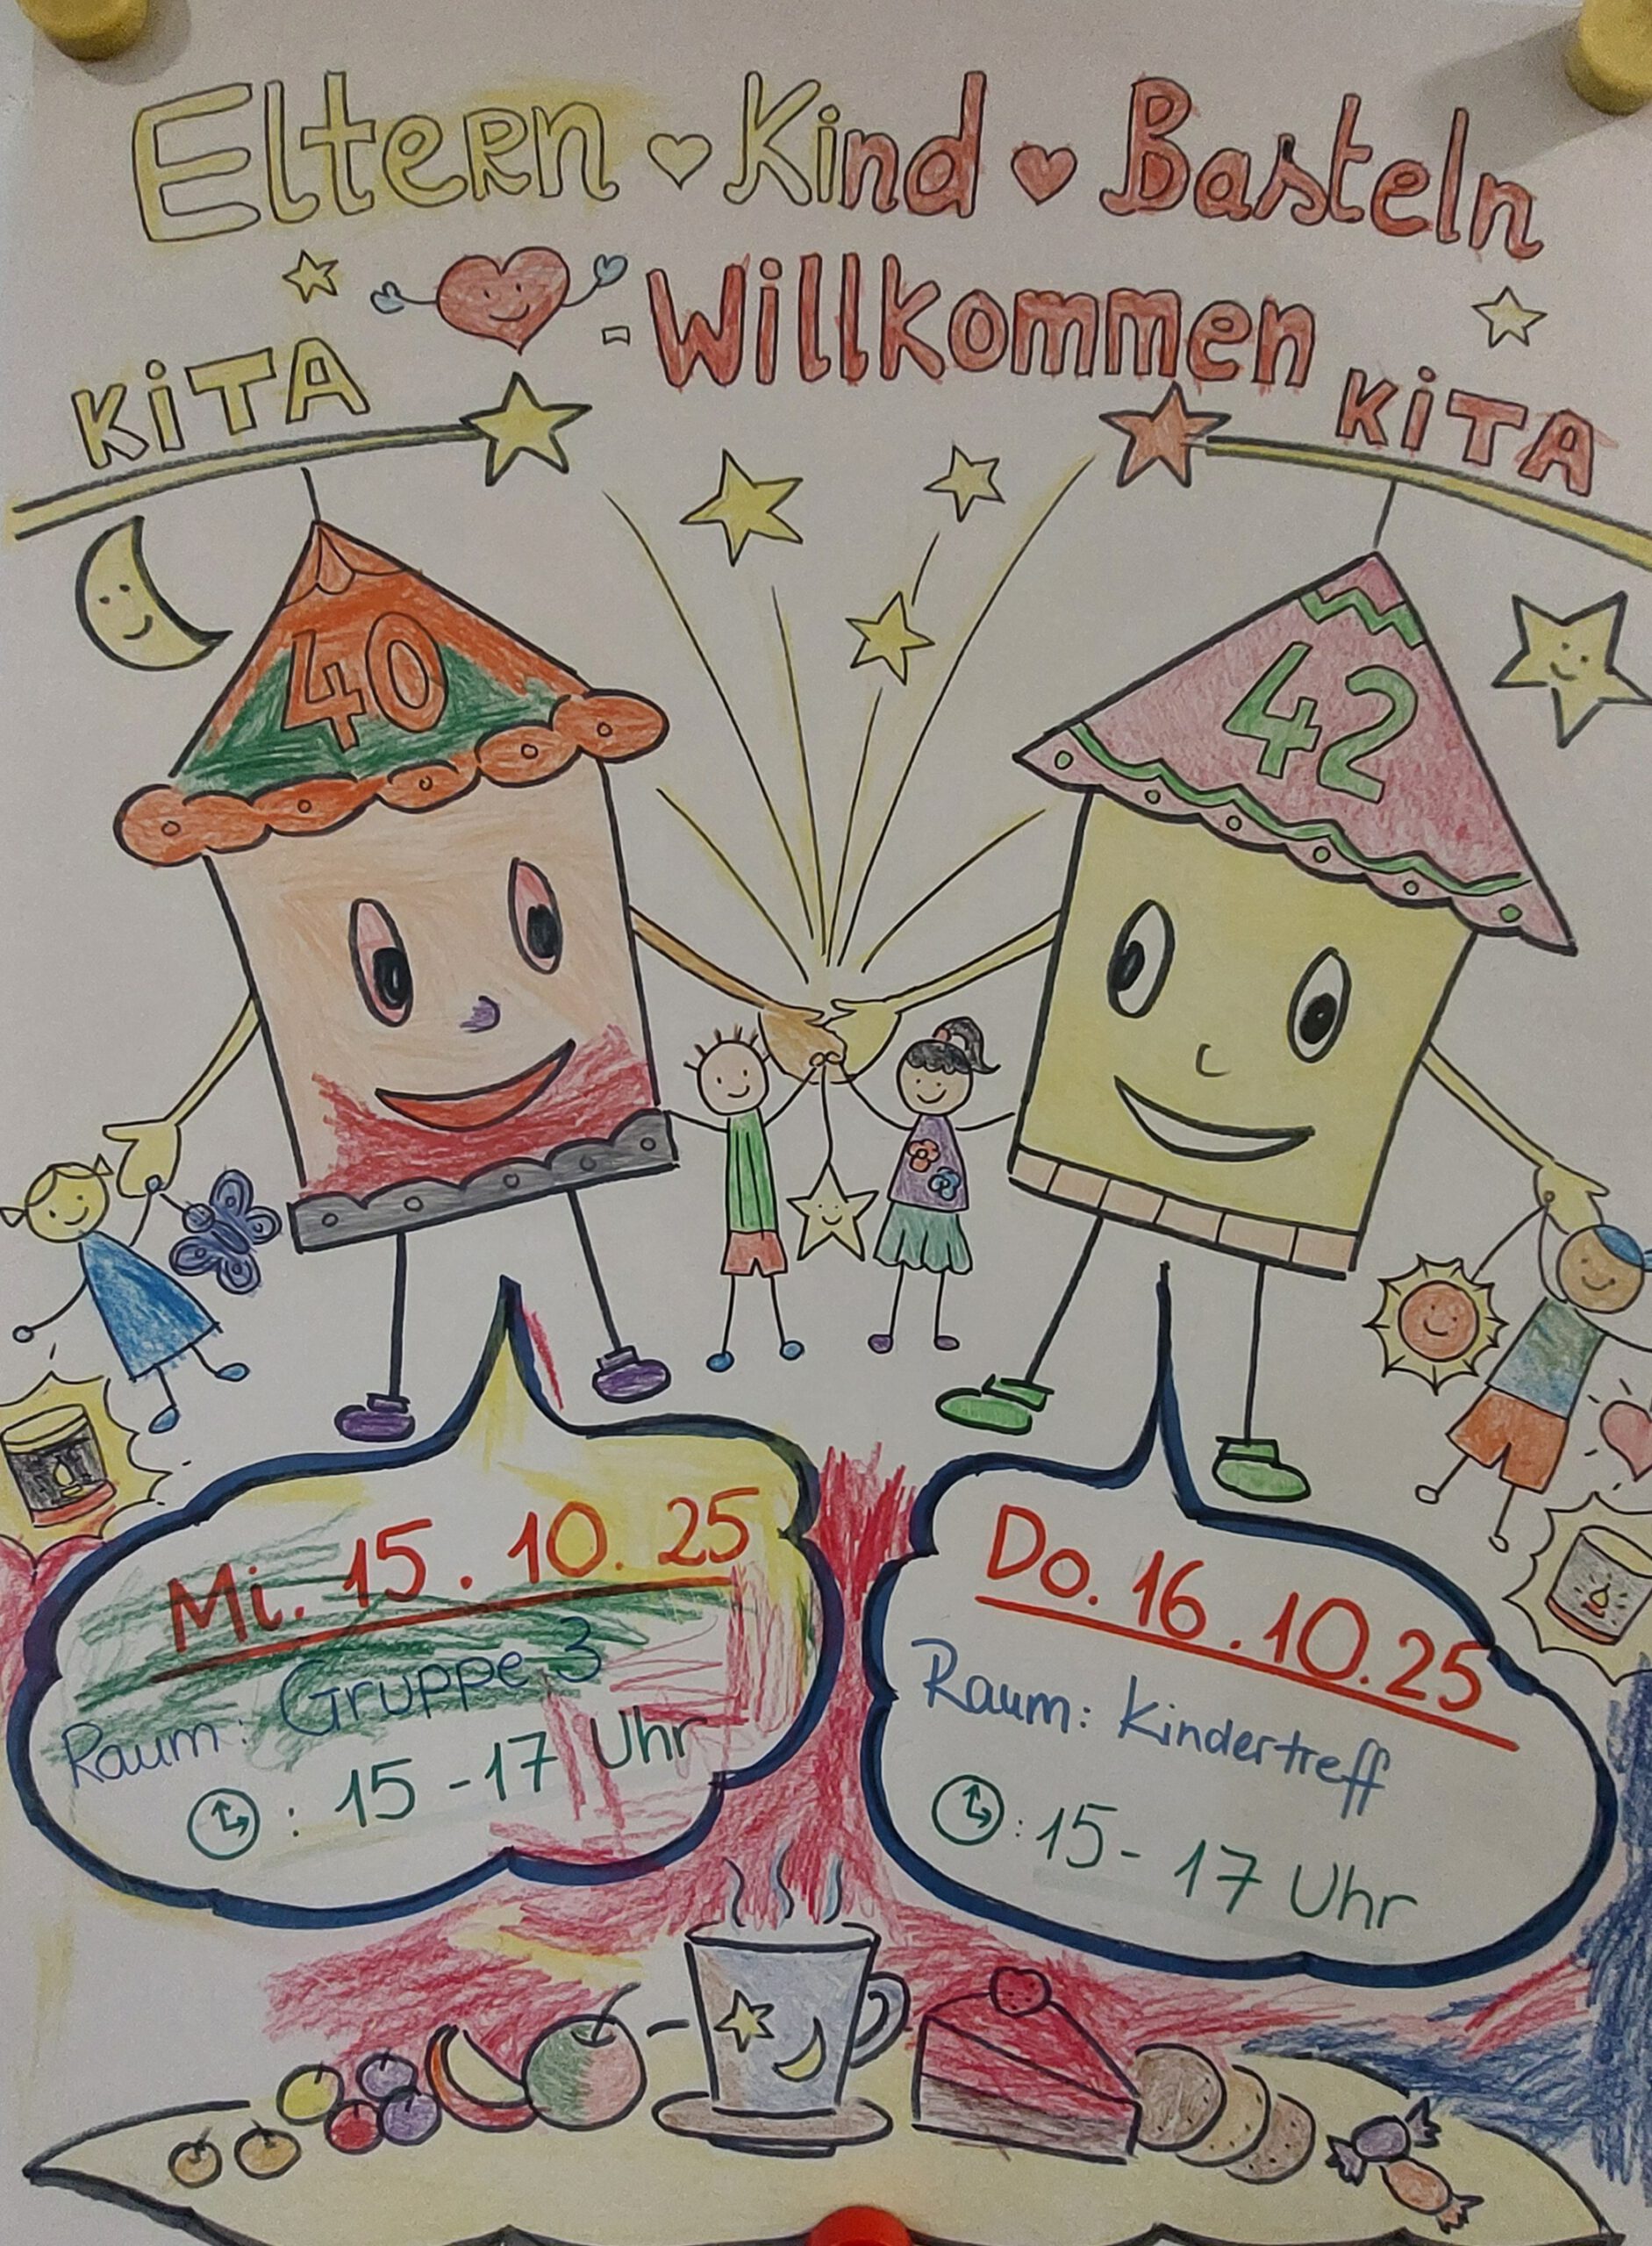 Eltern ♥ Kind ♥ Basteln
- Willkommen
KiTA
KiTA
40
42
Mi. 15. 10. 25
Raum: Gruppe 3
: 15 - 17 Uhr
Do. 16. 10. 25
Raum: Kindertreff
: 15 - 17 Uhr